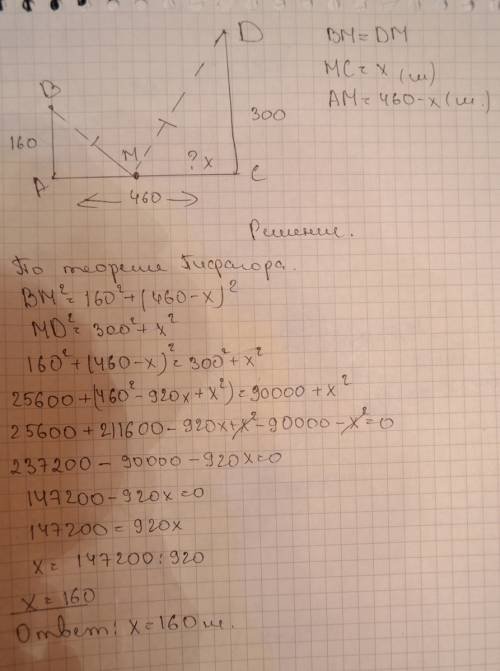 D
BM = DM
MC = x (м)
AM = 460-x (м.)
B
160
300
M
? x
A
C
460
Решение.
По теореме Пифагора.
BM² = 160² + (460-x)²
MD² = 300² + x²
160² + (460-x)² = 300² + x²
25600 + (460² - 920x + x²) = 90000 + x²
25600 + 211600 - 920x + x² - 90000 - x² = 0
237200 - 90000 - 920x = 0
147200 - 920x = 0
147200 = 920x
x = 147200 : 920
x = 160
Ответ: x = 160 м.